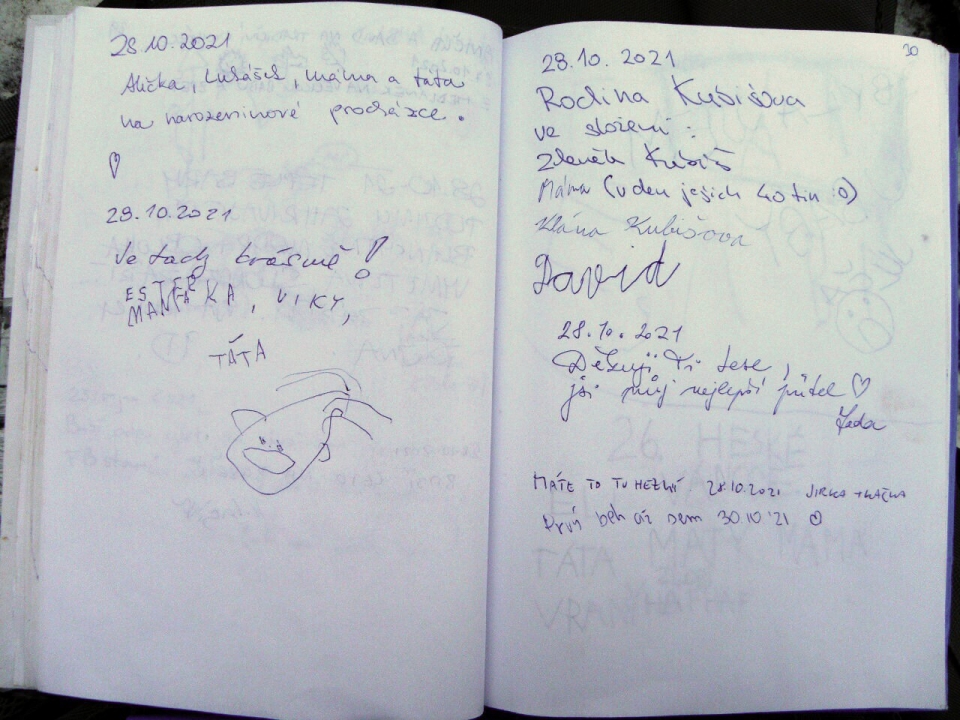 28.10.2021
Alička, Lukášek, máma a táta
na narozeninové procházce.
28.10.2021
Je tady krásně!
ESTER
MAMKA, VIKY,
TÁTA
30
28.10.2021
Rodina Kubišova
ve složení:
Zdeněk Kubiš
Máma (v den jejich 40tin :o)
Klára Kubišova
David
28.10.2021
Děkuji Ti lese,
jsi můj nejlepší přítel ♡
MÁTE TO TU HEZKÝ 28.10.2021 JIRKA +
První běh až sem 30.10.'21